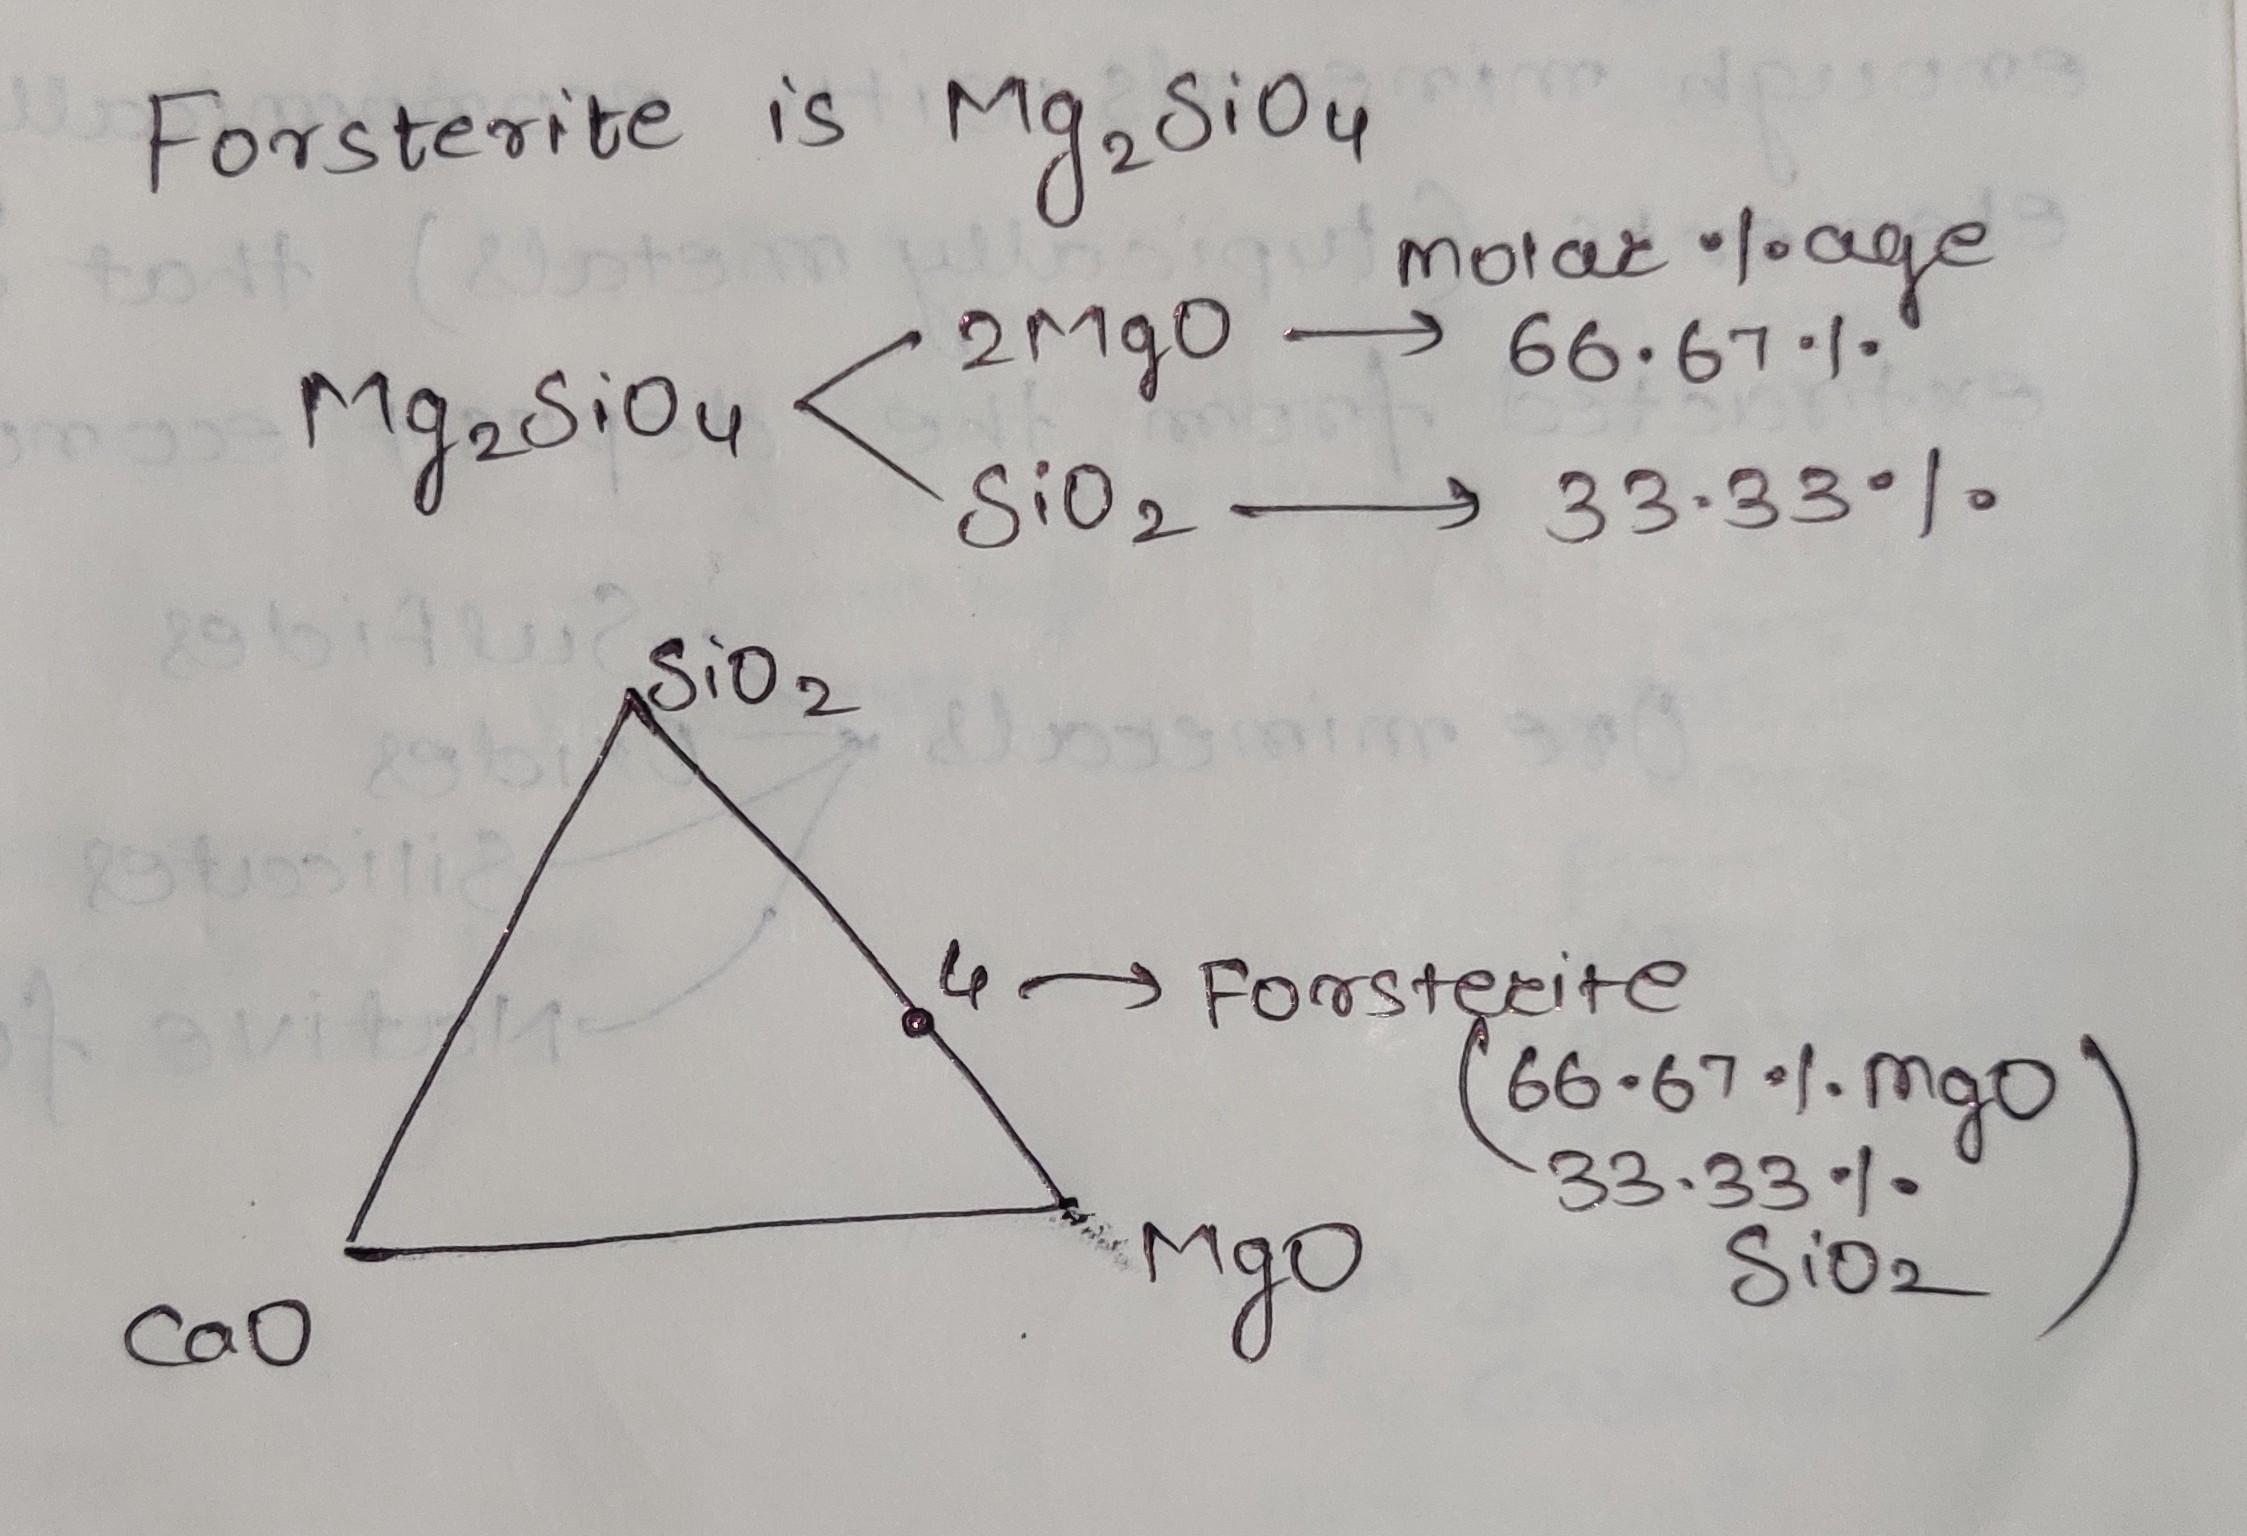 Forsterite is Mg₂SiO₄
molar %age
2MgO → 66.67%
Mg₂SiO₄
SiO₂ → 33.33%
SiO₂
4 → Forsterite
(66.67% MgO
33.33%
SiO₂)
MgO
CaO